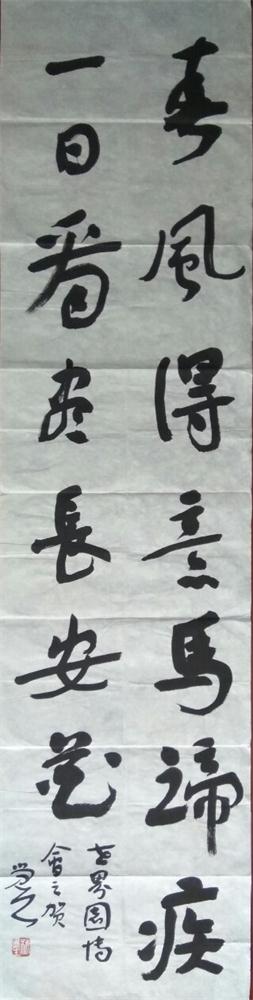 春風得意馬蹄疾
一日看盡長安花
世界園博
會之賀